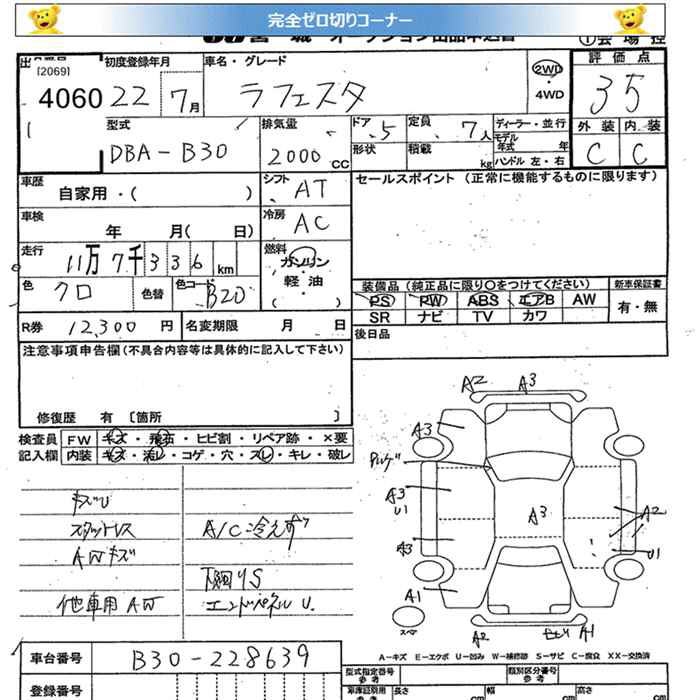 完全ゼロ切りコーナー
[2069]
4060
初度登録年月
22 7月
車名・グレード
ラフェスタ
2WD
4WD
評価点
3 5
外装 内装
C C
型式
DBA-B30
排気量
2000 CC
ドア 5
定員 7人
形状
積載 kg
ディーラー・並行
モデル年式 年
ハンドル 左・右
車歴
自家用・( )
シフト AT
セールスポイント (正常に機能するものに限ります)
車検
年 月( 日)
冷房 AC
走行
11万7千336km
燃料
ガソリン
軽油
( )
色
クロ
色替
色コード B20
装備品 (純正品に限り○をつけてください)
新車保証書
PS PW ABS エアB AW
有・無
SR ナビ TV カワ
R券 12,300円
名変期限 月 日
後日品
注意事項申告欄 (不具合内容等は具体的に記入して下さい)
修復歴 有 [箇所 ]
検査員 FW キズ・飛石・ヒビ割・リペア跡・×要
記入欄 内装 キズ・汚レ・コゲ・穴・スレ・キレ・破レ
キズU
スタットレス
AWキズ
他車用AW
A/C冷えず
下廻りS
エンドパネルU.
A2 A3
A3
A3
U1
A3
A3
A2
U1
A1
スペア
A2
A1
A-キズ E-エクボ U-凹み W-補修跡 S-サビ C-腐食 XX-交換済
車台番号
B30-228639
登録番号
型式指定番号
参考
類別区分番号
参考
長さ cm
幅 cm
高さ cm